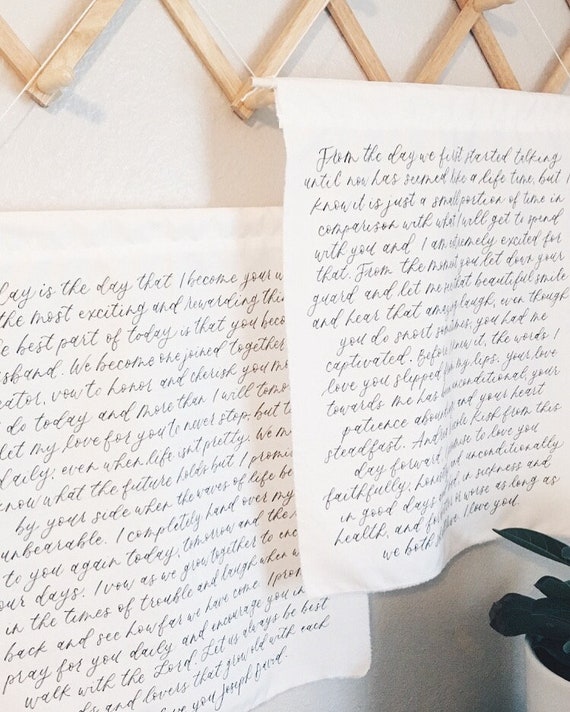 is the day that I become your
the most exciting and rewarding
best part of today is that you
We become one joined together
vow to honor and cherish you
do today and more than I will
let my love for you to never stop, but
daily; even when life isnt pretty. We
know what the future holds but I
by your side when the waves of life
unbearable. I completely hand over my
to you again today, tomorrow and the
our days: I vow as we grow together to
in the times of trouble and laugh when
back and see how far we have come. I
pray for you daily and encourage you in
walk with the Lord. Let us always be best
and lovers that grow old with each
you Joseph David
From the day we first started talking
until now has seemed like a life time, but I
know it is just a small portion of time in
comparison with what I will get to spend
with you and I am extremely excited for
that. From the moment you let down your
guard and let me see that beautiful smile
and hear that amazing laugh, even though
you do snort sometimes, you had me
captivated. Before I knew it, the words I
love you slipped from my lips. your love
towards me has been unconditional, your
patience abounding and your heart
steadfast. And Nicole Kish from this
day forward I promise to love you
faithfully, honestly and unconditionally
in good days and bad, in sickness and
health, and for better or worse as long as
we both shall live. I love you